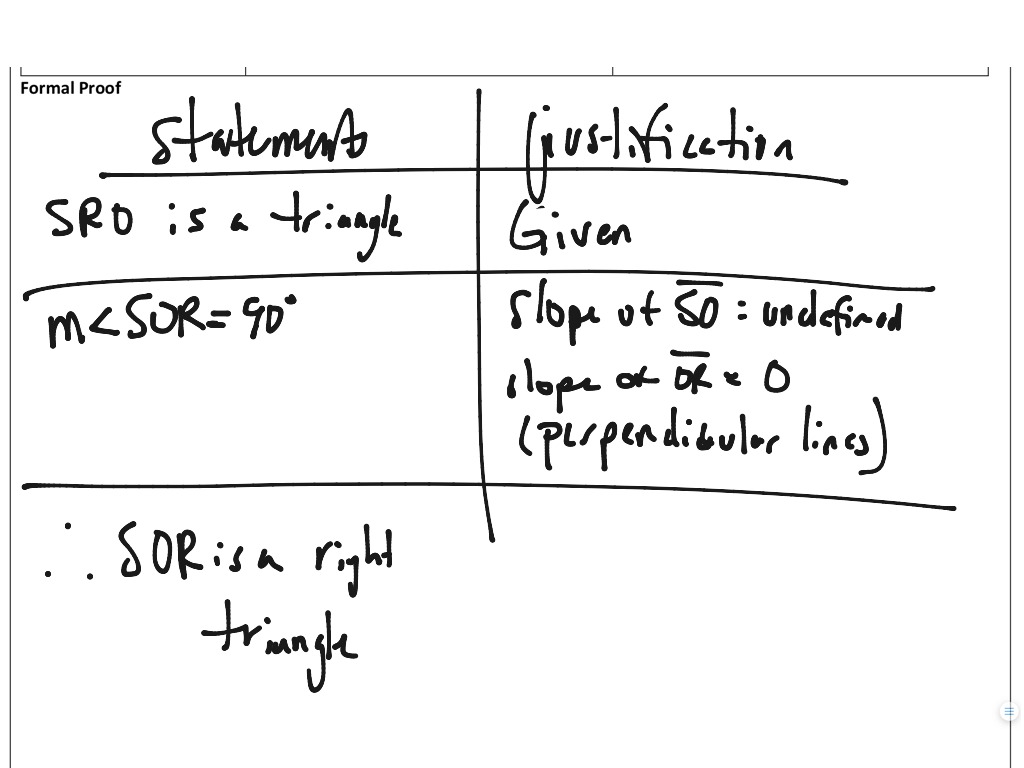 Formal Proof
Statements
justification
SRO is a triangle
Given
m<SOR = 90°
Slope of SO = undefined
slope of OR = 0
(perpendicular lines)
∴ SOR is a right
triangle